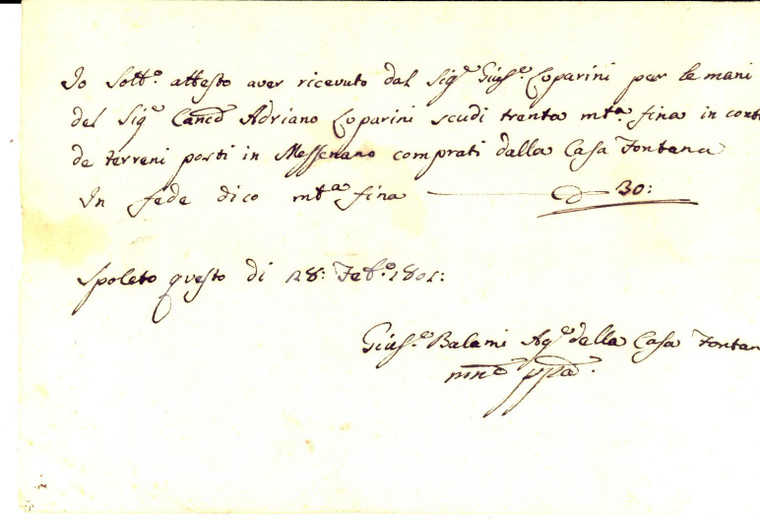 Io Sott.o attesto aver ricevuto dal Sig.e Gius.e Luparini per le mani
del Sig.e Canco Adriano Luparini scudi trenta mta. fina in conto
de terreni posti in Messenano comprati dalla Casa Fontana
In fede dico mta fina 30:
Spoleto questo di 28: Feb.o 1801:
Gius.e Balami Ag.e della Casa Fontan
mno ppa.